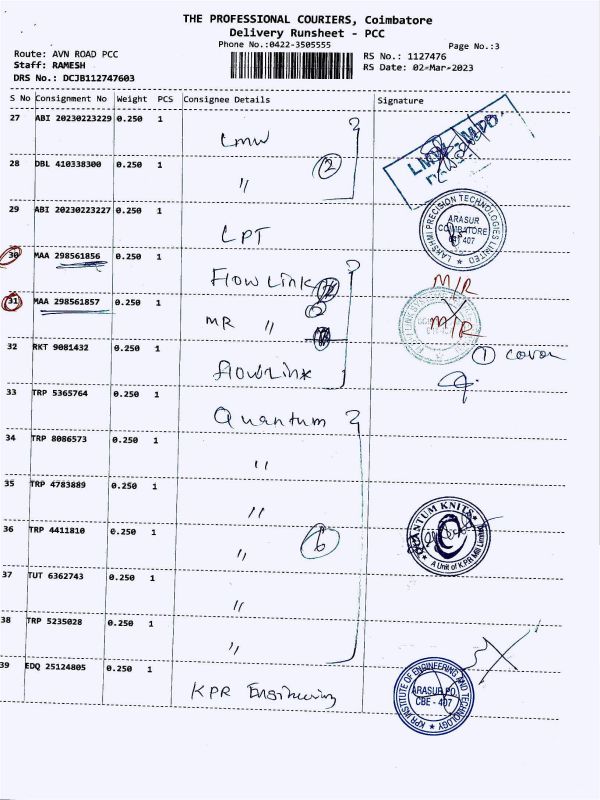 THE PROFESSIONAL COURIERS, Coimbatore
Delivery Runsheet - PCC
Phone No.:0422-3505555
Page No.:3
Route: AVN ROAD PCC
RS No.: 1127476
Staff: RAMESH
RS Date: 02-Mar-2023
DRS No.: DCJB112747603
S No Consignment No Weight PCS Consignee Details Signature
27 ABI 20230223229 0.250 1 LMW
28 DBL 410338300 0.250 1 〃 2
LMW
29 ABI 20230223227 0.250 1 LPT
LAKSHMI PRECISION TECHNOLOGIES LIMITED
ARASUR
COIMBATORE
641 407
30 MAA 298561856 0.250 1 Flowlink M/R
31 MAA 298561857 0.250 1 MR 〃 M/R
32 RKT 9081432 0.250 1 Flowlink 1 cover
33 TRP 5365764 0.250 1 Quantum
34 TRP 8086573 0.250 1 〃
35 TRP 4783889 0.250 1 〃
36 TRP 4411810 0.250 1 〃 6
QUANTUM KNITS
A Unit of K.P.R. Mill Limited
37 TUT 6362743 0.250 1 〃
38 TRP 5235028 0.250 1 〃
39 EDQ 25124805 0.250 1 KPR Engineering
KPR INSTITUTE OF ENGINEERING AND TECHNOLOGY
ARASUR PO
CBE - 407